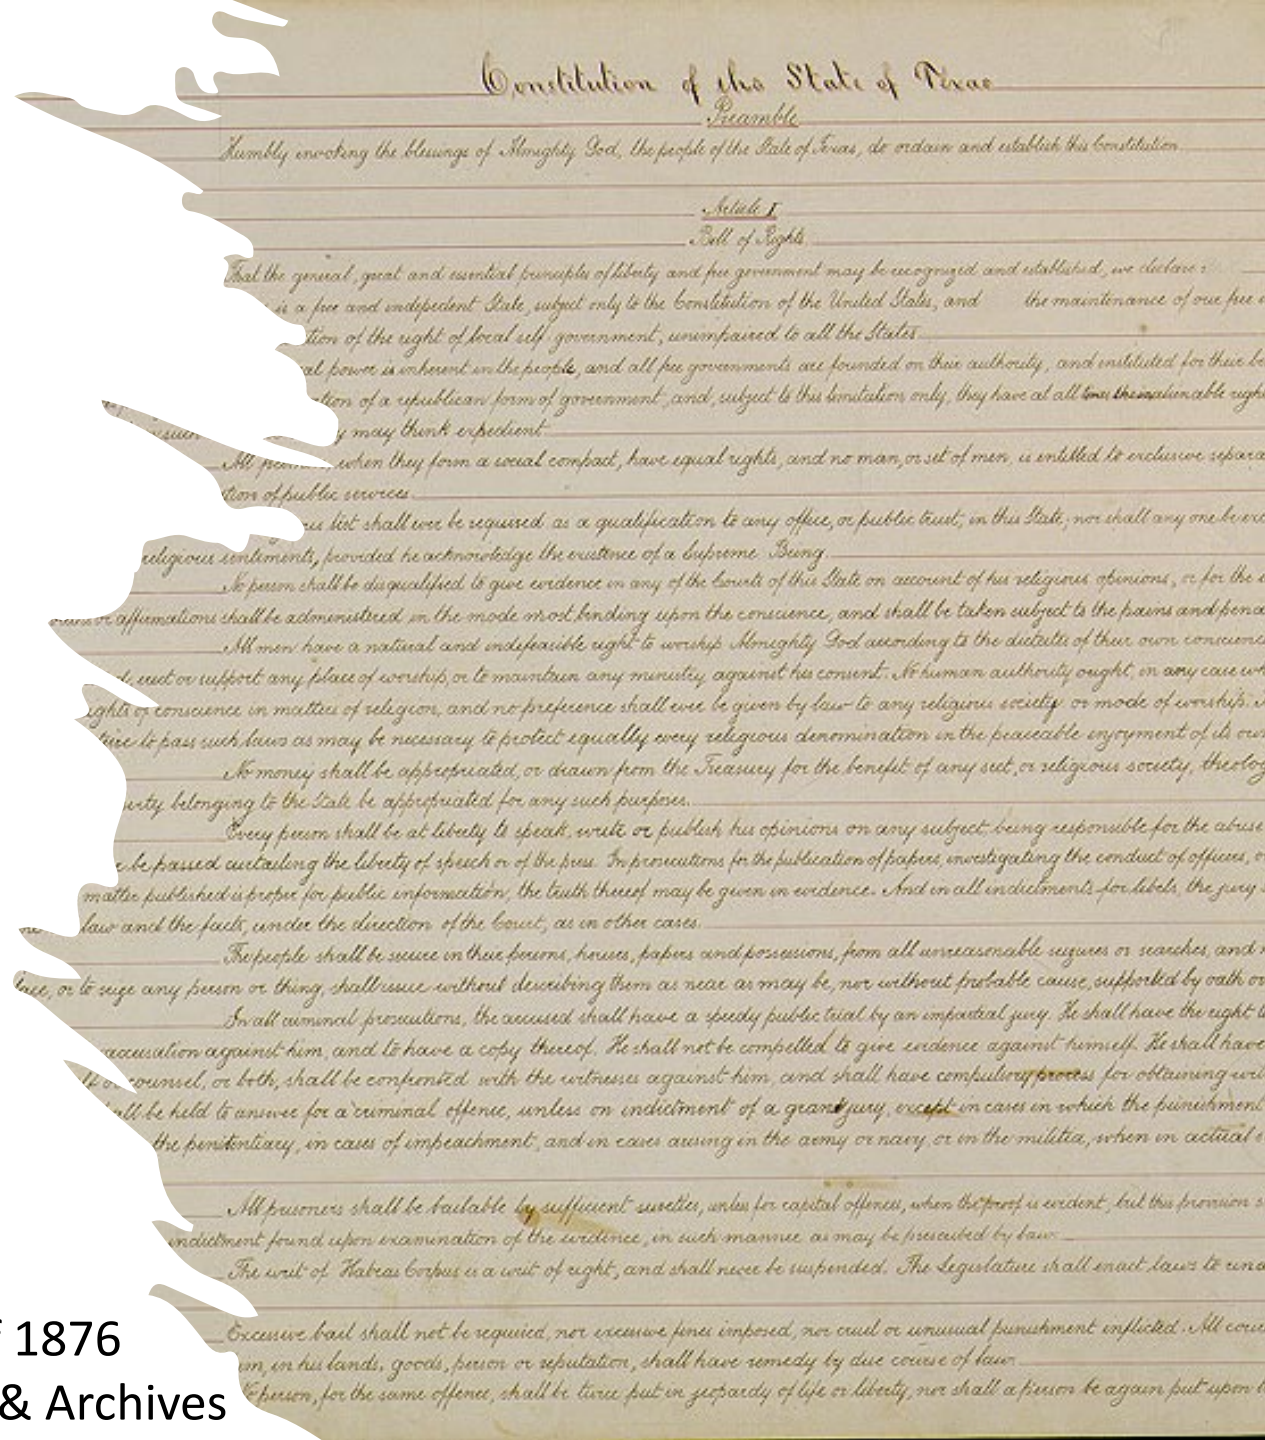 Constitution of the State of Texas
Preamble
Humbly invoking the blessings of Almighty God, the people of the State of Texas, do ordain and establish this Constitution
Article I
Bill of Rights
That the general, great and essential principles of liberty and free government may be recognized and established, we declare:
is a free and indepedent State, subject only to the Constitution of the United States, and the maintenance of our free
tion of the right of local self-government, unimpaired to all the States
al power is inherent in the people, and all free governments are founded on their authority, and instituted for their be
tion of a republican form of government, and, subject to this limitation only, they have at all times the inalienable righ
such y may think expedient
All when they form a social compact, have equal rights, and no man, or set of men, is entitled to exclusive separa
tion of public services.
ous test shall ever be required as a qualification to any office, or public trust, in this State; nor shall any one be exc
religious sentiments, provided he acknowledge the existence of a Supreme Being.
No person shall be disqualified to give evidence in any of the Courts of this State on account of his religious opinions, or for the
or affirmations shall be administered in the mode most binding upon the conscience, and shall be taken subject to the pains and pena
All men have a natural and indefeasible right to worship Almighty God according to the dictates of their own conscience
d, erect or support any place of worship, or to maintain any ministry against his consent. No human authority ought, in any case wh
ights of conscience in matters of religion, and no preference shall ever be given by law to any religious society or mode of worship.
ture to pass such laws as may be necessary to protect equally every religious denomination in the peaceable enjoyment of its own
No money shall be appropriated, or drawn from the Treasury for the benefit of any sect, or religious society, theolog
erty belonging to the State be appropriated for any such purposes.
Every person shall be at liberty to speak, write or publish his opinions on any subject, being responsible for the abuse
r be passed curtailing the liberty of speech or of the press. In prosecutions for the publication of papers, investigating the conduct of officers, o
matter published is proper for public information, the truth thereof may be given in evidence. And in all indictments for libels, the jury
law and the facts, under the direction of the Court, as in other cases.
The people shall be secure in their persons, houses, papers and possessions, from all unreasonable seizures or searches, and
lace, or to seize any person or thing, shall issue without describing them as near as may be, nor without probable cause, supported by oath or
In all criminal prosecutions, the accused shall have a speedy public trial by an impartial jury. He shall have the right t
accusation against him, and to have a copy thereof. He shall not be compelled to give evidence against himself. He shall have
lf or counsel, or both, shall be confronted with the witnesses against him, and shall have compulsory process for obtaining wit
hall be held to answer for a criminal offence, unless on indictment of a grand jury, except in cases in which the punishment
the penitentiary, in cases of impeachment, and in cases arising in the army or navy, or in the militia, when in actual
All prisoners shall be bailable by sufficient sureties, unless for capital offences, when the proof is evident, but this provision s
indictment found upon examination of the evidence, in such manner as may be prescribed by law.
The writ of Habeas Corpus is a writ of right, and shall never be suspended. The Legislature shall enact laws to rend
Excessive bail shall not be required, nor excessive fines imposed, nor cruel or unusual punishment inflicted. All cour
im, in his lands, goods, person or reputation, shall have remedy by due course of law.
No person, for the same offence, shall be twice put in jeopardy of life or liberty, nor shall a person be again put upon t
f 1876
& Archives